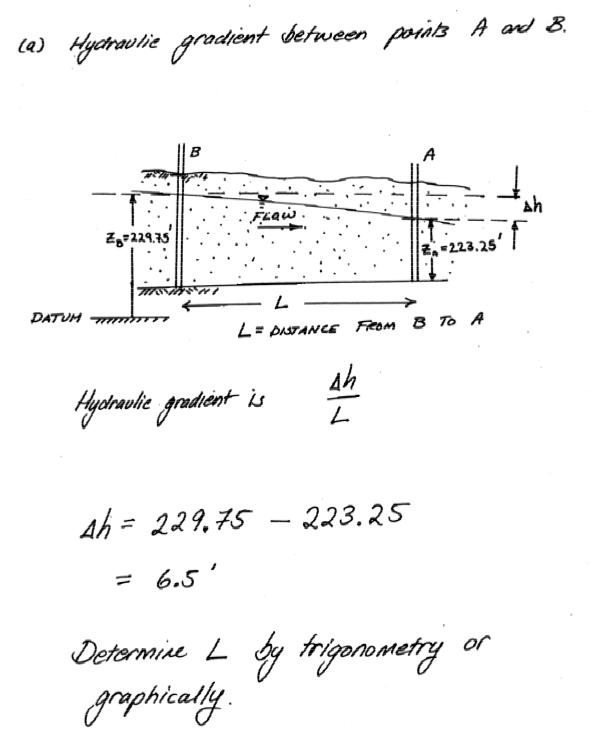 (a) Hydraulic gradient between points A and B.
B
A
Δh
FLOW
Z_B=229.75'
Z_A=223.25'
L
DATUM
L = DISTANCE FROM B TO A
Hydraulic gradient is Δh/L
Δh = 229.75 - 223.25
= 6.5'
Determine L by trigonometry or
graphically.